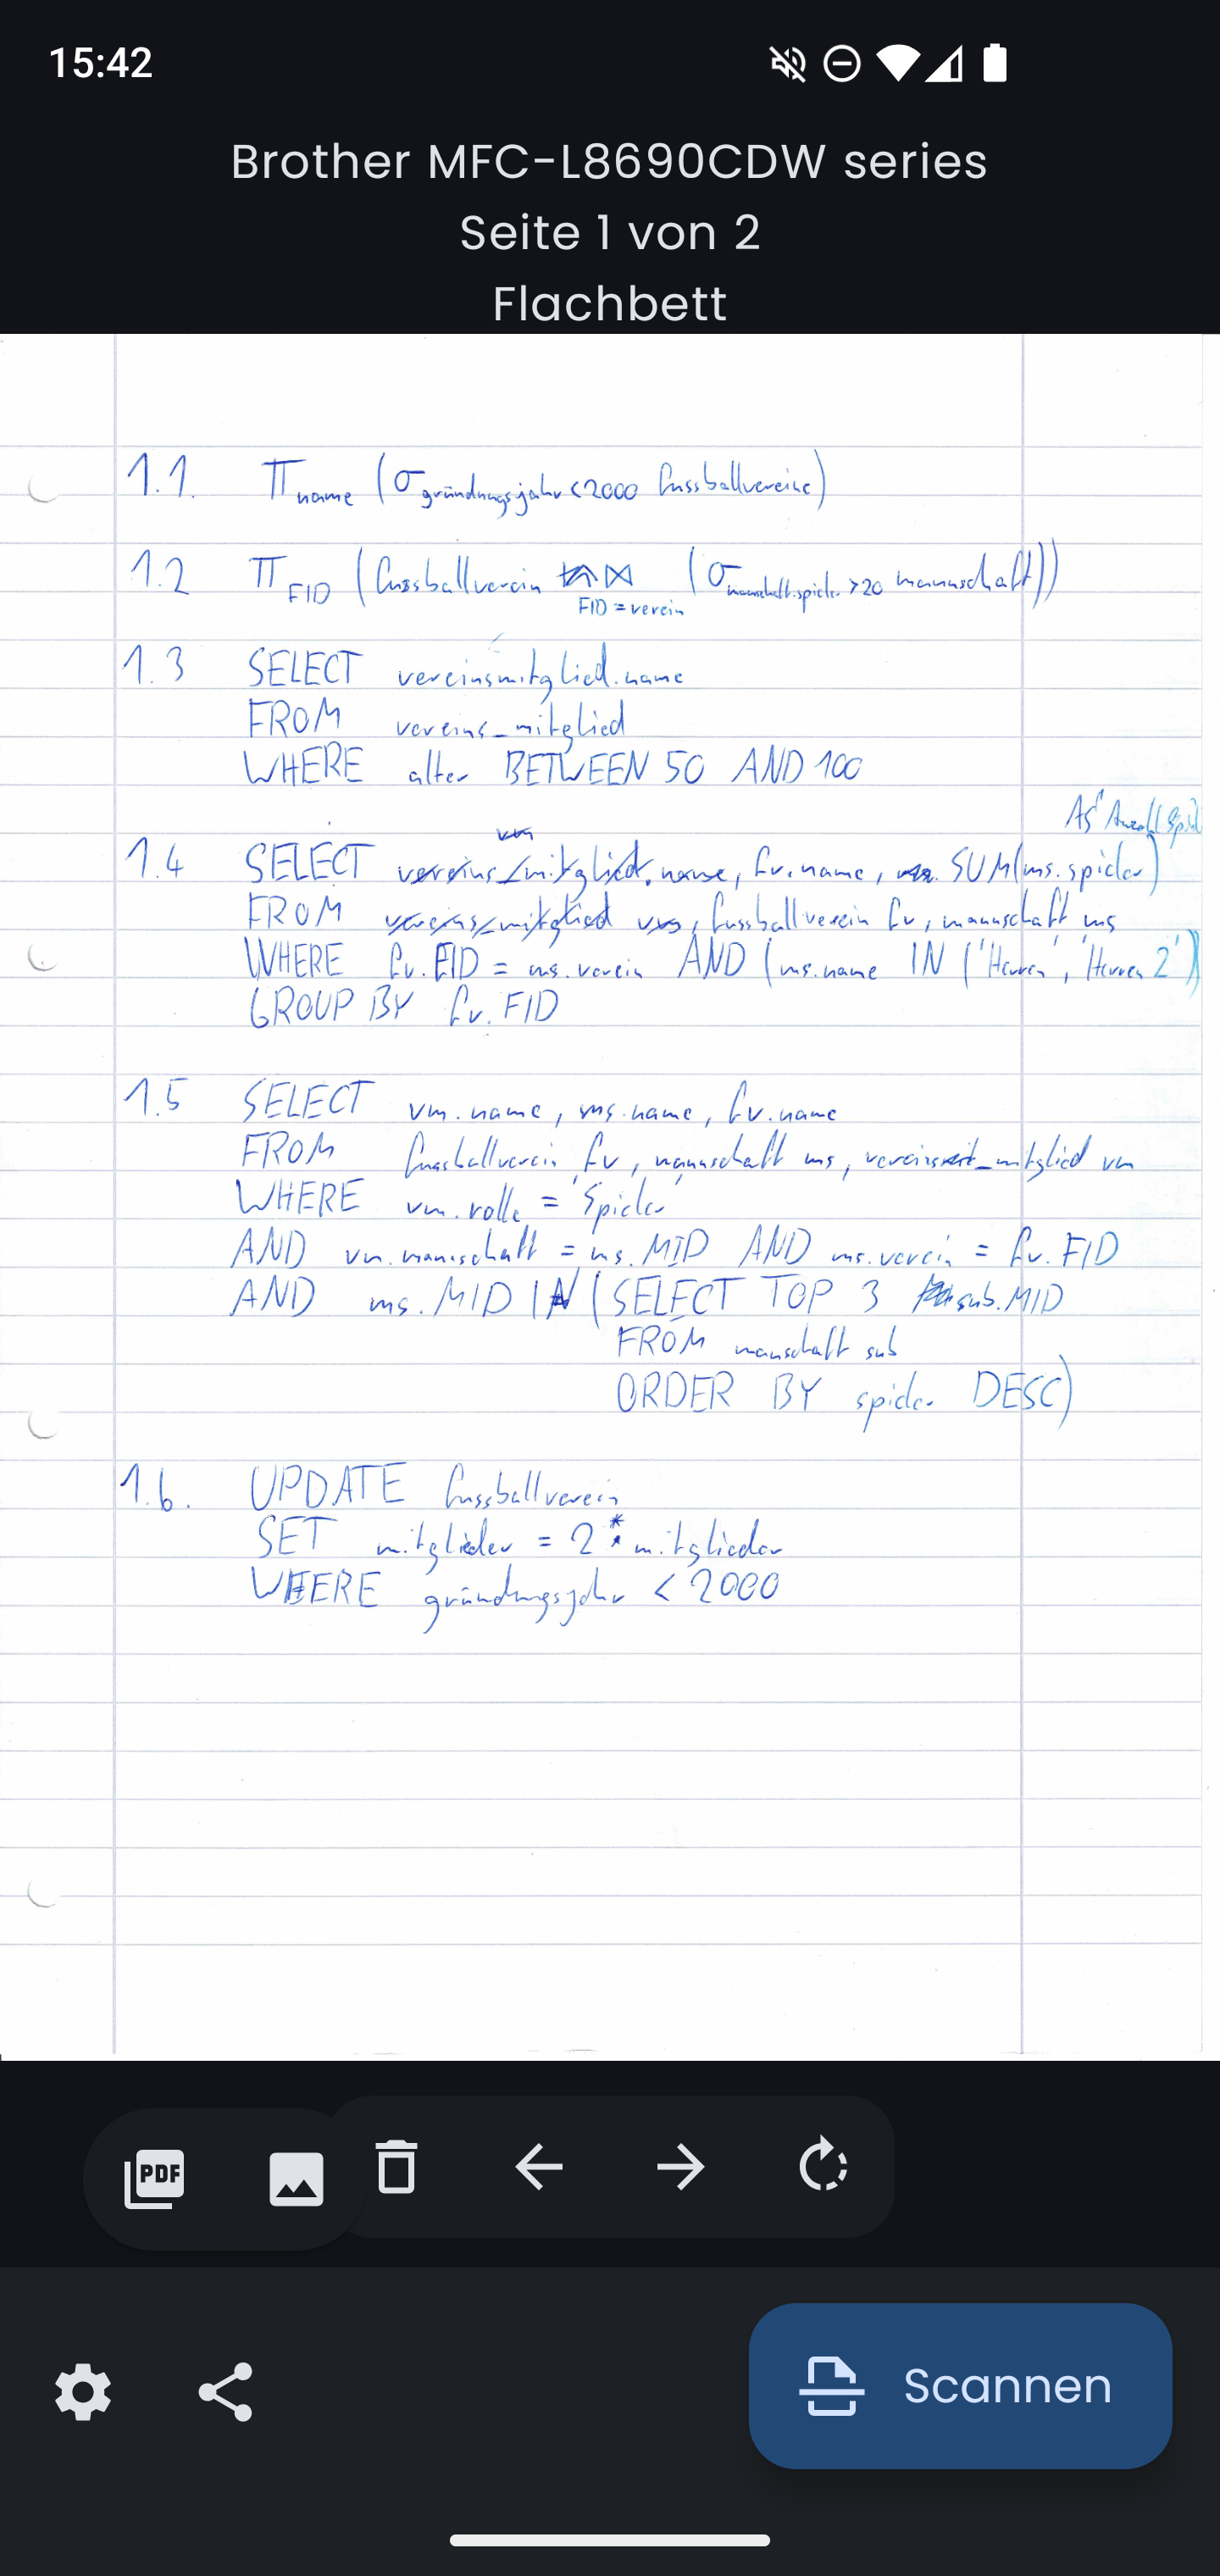 15:42
Brother MFC-L8690CDW series
Seite 1 von 2
Flachbett
1.1. π name (σ gründungsjahr<2000 fussballvereine)
1.2 π FID (fussballverein ⋈ FID=verein (σ mannschaft.spieler>20 mannschaft))
1.3 SELECT vereinsmitglied.name
FROM vereins_mitglied
WHERE alter BETWEEN 50 AND 100
AS Anzahl Spiel
1.4 SELECT fv.name, SUM(ms.spieler)
FROM fussballverein fv, mannschaft ms
WHERE fv.FID = ms.verein AND (ms.name IN ('Herren', 'Herren 2')
GROUP BY fv.FID
1.5 SELECT vm.name, ms.name, fv.name
FROM fussballverein fv, mannschaft ms, vereins_mitglied vm
WHERE vm.rolle = 'Spieler'
AND vm.mannschaft = ms.MID AND ms.verein = fv.FID
AND ms.MID IN (SELECT TOP 3 sub.MID
FROM manschaft sub
ORDER BY spieler DESC)
1.6. UPDATE fussballverein
SET mitglieder = 2 * mitglieder
WHERE gründungsjahr < 2000
PDF
Scannen